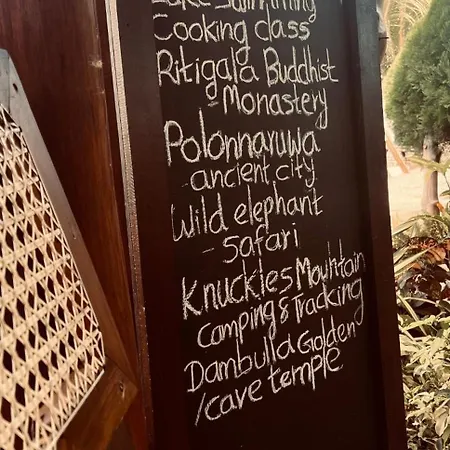 Lake Swimming
Cooking class
Ritigala Buddhist
- Monastery
Polonnaruwa
- ancient city
Wild elephant
- Safari
Knuckles Mountain
Camping & Tracking
Dambulla Golden
/cave temple